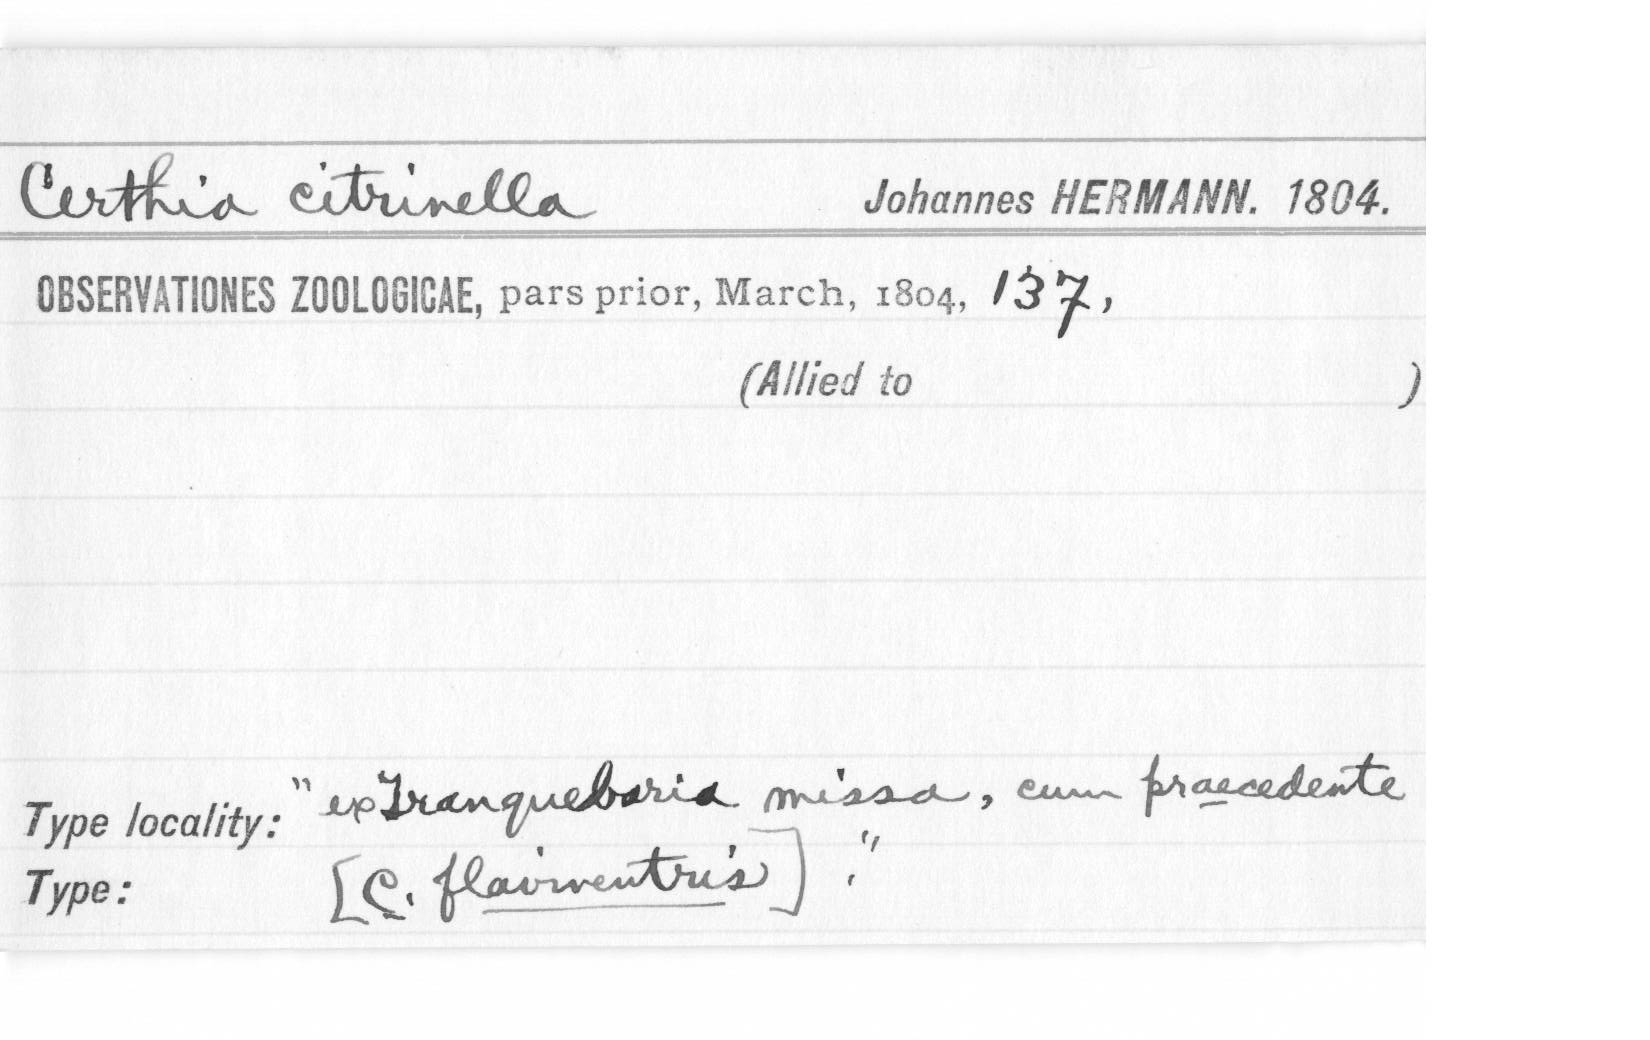 Certhia citrinella Johannes HERMANN. 1804.
OBSERVATIONES ZOOLOGICAE, pars prior, March, 1804, 137,
(Allied to )
Type locality: "ex Tranquebaria missa, cum praecedente
Type: [C. flaviventris] ."